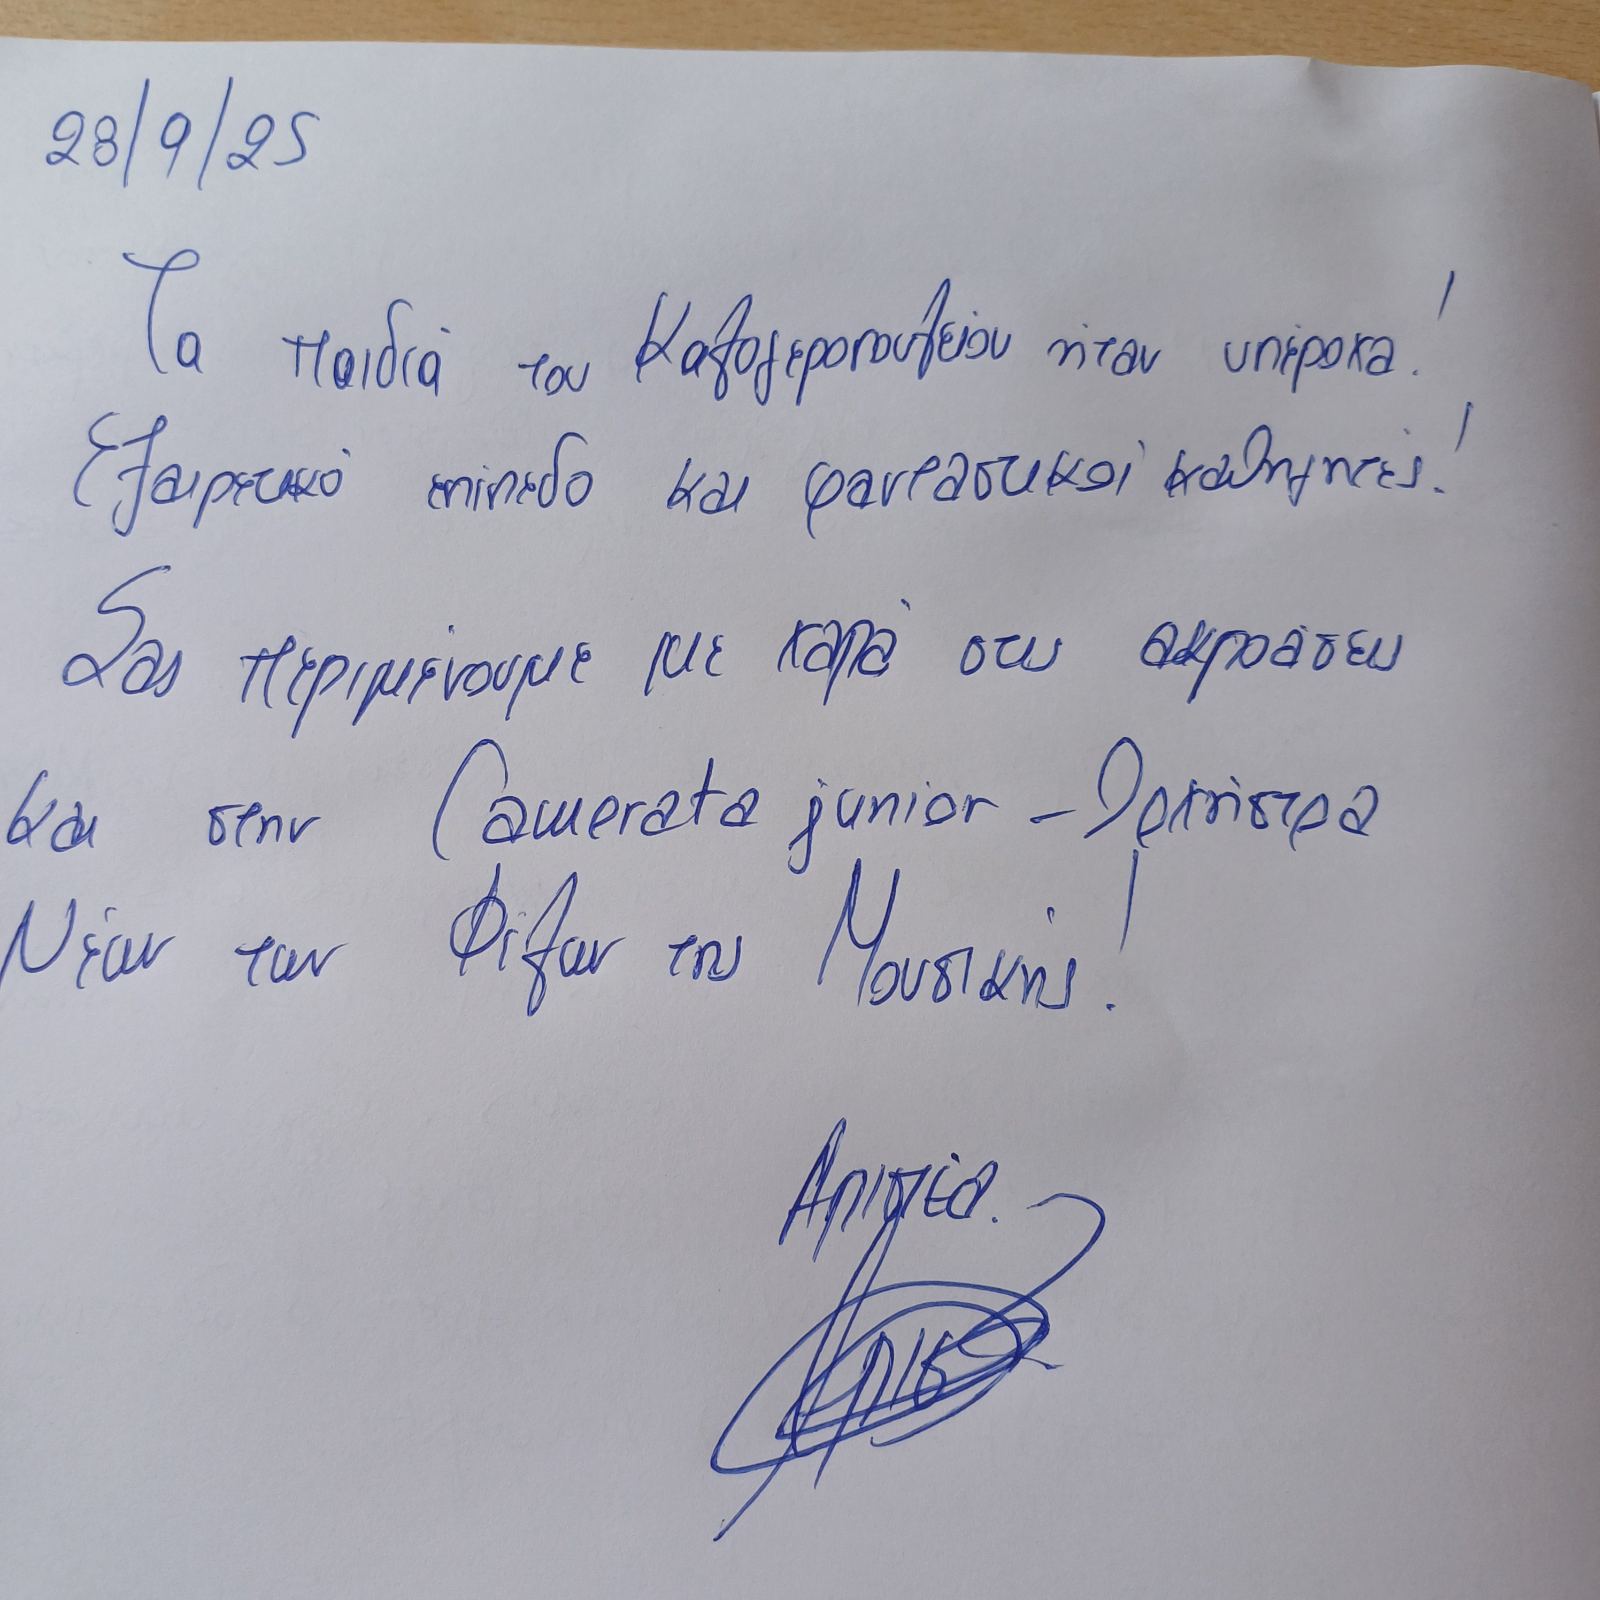 28/9/25
Τα παιδιά του Καλογεροπουλείου ήταν υπέροχα!
Εξαιρετικό επίπεδο και φανταστικοί καθηγητές!
Σας περιμένουμε με χαρά στις ακροάσεις
και στην Camerata junior - Ορχήστρα
Νέων των Φίλων της Μουσικής!